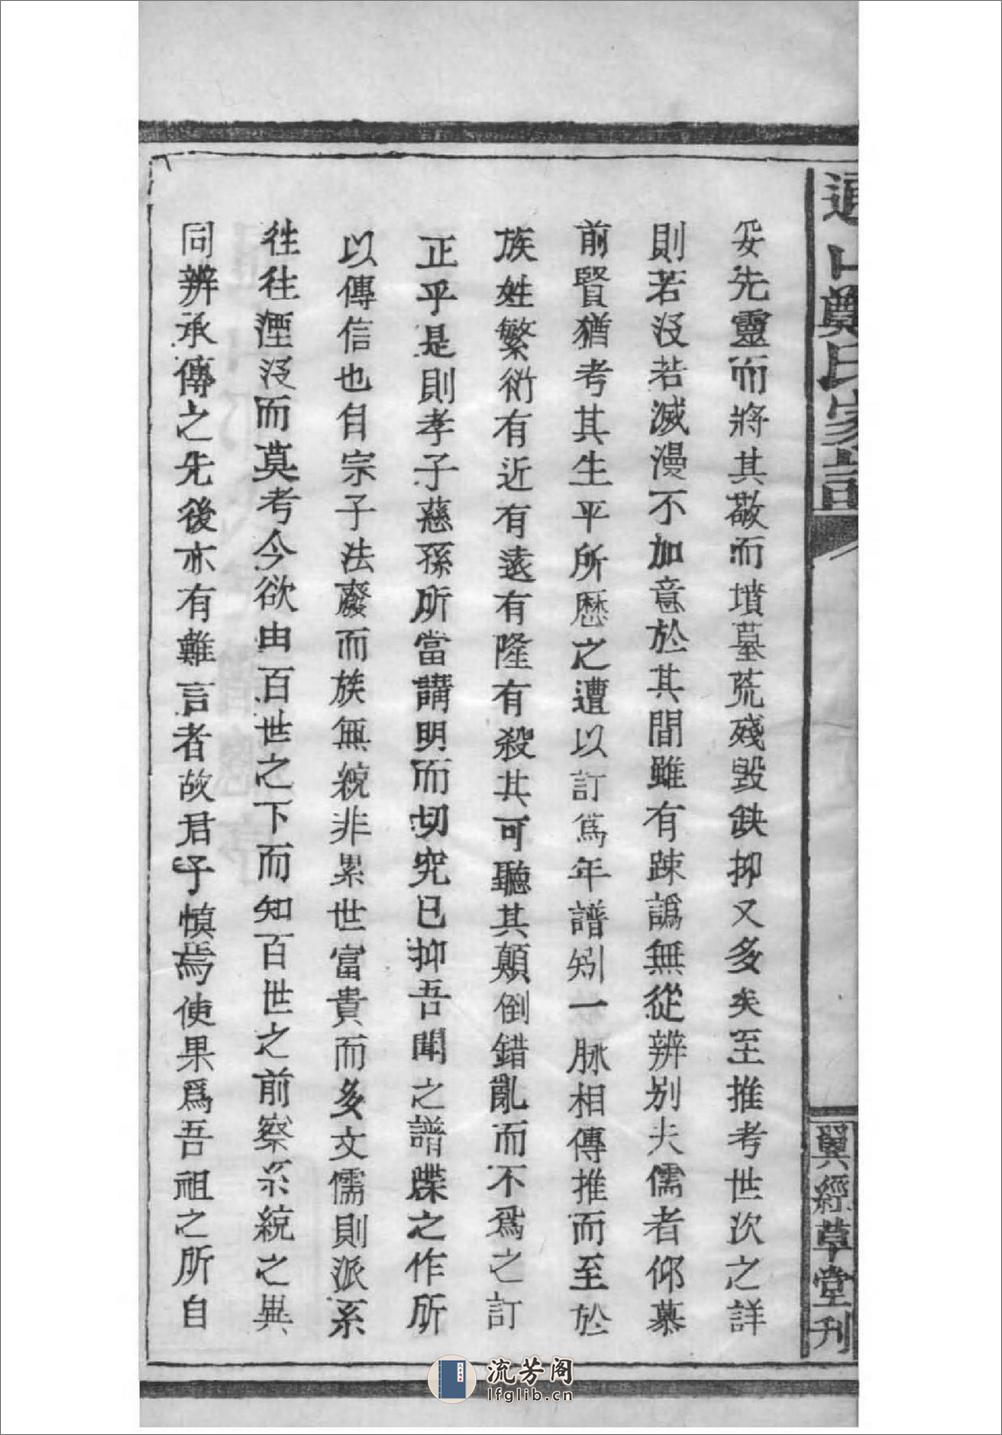 山鄭氏家譜
翼經草堂刋
妥先靈而將其敬而墳墓荒殘毀缺抑又多矣至推考世次之詳
則若沒若滅漫不加意於其間雖有踈譌無從辨别夫儒者仰慕
前賢猶考其生平所歷之遭以訂爲年譜矧一脉相傳推而至於
族姓繁衍有近有遠有隆有殺其可聽其顛倒錯亂而不爲之訂
正乎是則孝子慈孫所當講明而切究已抑吾聞之譜牒之作所
以傳信也自宗子法廢而族無統非累世富貴而多文儒則派系
往往湮沒而莫考今欲由百世之下而知百世之前察系統之異
同辨承傳之先後亦有難言者故君子慎焉使果爲吾祖之所自
流芳阁
lfglib.cn